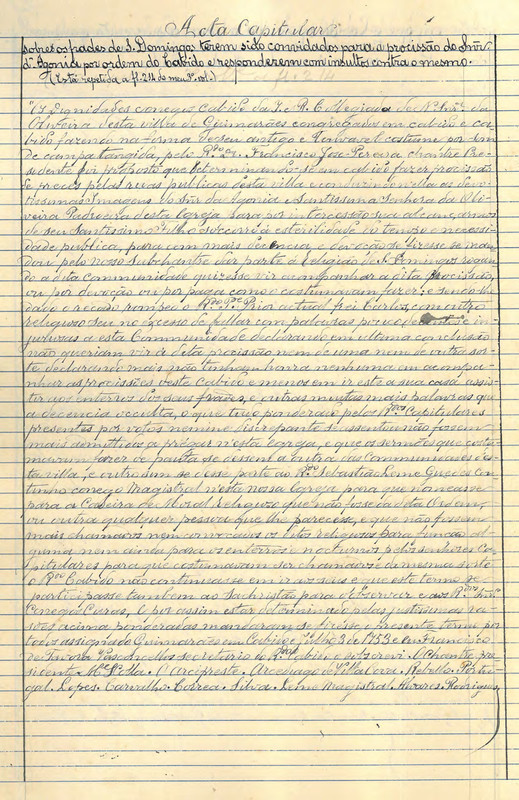 Acta Capitular
sobre os frades de S. Domingos terem sido convidados para a procissão do Snr.
d'Agonia por ordem do Cabido e responderem com insultos contra o mesmo.
(Está repetida a fl. 214 do meu 1º vol.)
conegos Cabido da I. e R. C. de N. Snr.ª da
Oliveira desta villa de Guimarães congregados em cabido e ca-
bido fazendo na forma de seu antigo e louvavel costume por som
de campa tangida, pelo R. Francisco José Pereira chantre Pre-
sidente foi proposto que determinando-se em cabido fazer procissão
de preces pelas ruas publicas desta villa e conduzindo nella as devo-
tissimas Imagens do Snr. da Agonia e Santissima Senhora da Oli-
veira Padroeira desta Igreja para por intercessão sua alcançarmos
de seu Santissimo Filho soccorro á esterilidade do tempo e necessi-
dade publica, para com mais decencia e devoção se fizesse se man-
dou pelo nosso subchantre dar parte á religião de S. Domingos rogan-
do a dita communidade quizesse vir acompanhar a dita procissão,
ou por devoção ou por paga como o costumavam fazer, e sendo-lhe
dado o recado rompeo o Prior actual frei Carlos, com outro
religioso seu no excesso de fallar com palavras pouco decentes e in-
juriosas a esta Communidade declarando em ultima conclusão
não queriam vir á dita procissão nem de uma nem de outra sor-
te declarando mais não tinham honra nenhuma em acompa-
nhar as procissões deste Cabido e menos em ir este a sua casa assis-
tir aos enterros dos seus frades, e outras muitas mais palavras que
a decencia occulta, o que tudo ponderado pelos R. Capitulares
presentes por votos nemine discrepante se assentou não fossem
mais admittidos a prégar n'esta Igreja, e que os sermões que costu-
mavam fazer de pauta se dessem a outra das Communidades des-
ta villa, e outrosim se désse parte ao R. Sebastião Leme Guedes Cou-
tinho conego Magistral n'esta nossa Igreja para que nomeasse
para a Cadeira de Moral religioso que não fosse da dita Ordem,
ou outra qualquer pessoa que lhe parecesse, e que não fossem
mais chamados nem convocados os ditos religiosos para funcção al-
guma nem ainda para os enterros e nocturnos pelos senhores Ca-
pitulares para que costumavam ser chamados e da mesma sorte
o R. Cabido não continuasse em ir aos seus e que este termo se
participasse tambem ao Sachristão para o observar e aos R.
Conegos Curas, e por assim estar determinado pelas justissimas ra-
sões acima ponderadas mandaram se fizesse o presente termo por
todos assignado Guimarães em Cabido e Julho 3 de 1753 e eu Francisco
de Tavora Vasconcellos secretario do R. Cabido o subscrevi. O Chantre pre-
sidente. Arcipreste. Arcediago de Villa Cova. Rebello. Portu-
gal. Lopes. Carvalho. Correa. Silva. Leme Magistral. Alvares. Rodrigues